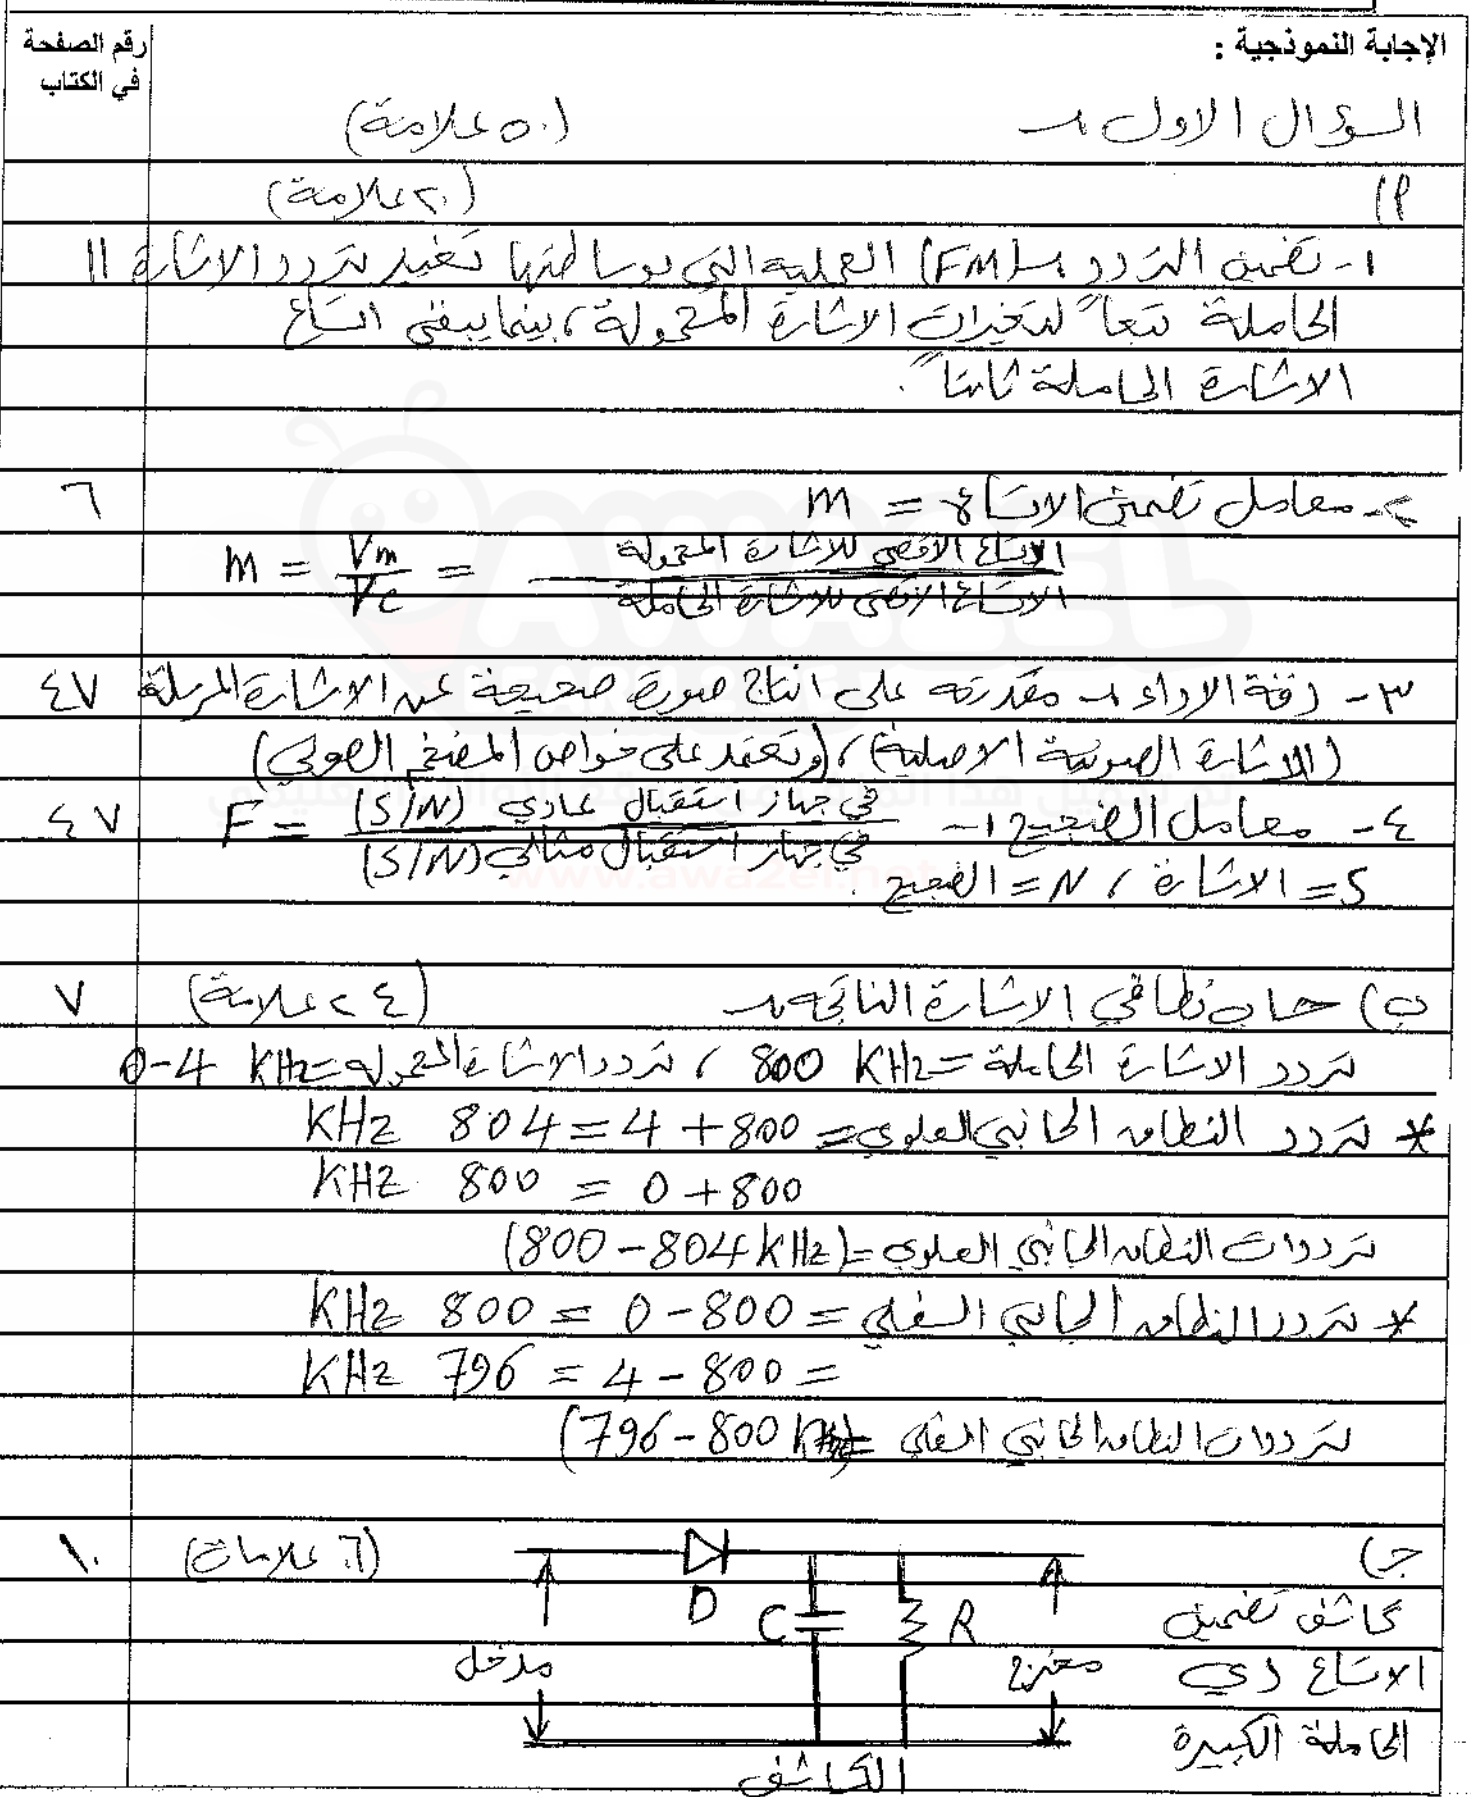 الإجابة النموذجية :
رقم الصفحة
في الكتاب
السؤال الاول :- (٥٠ علامة)
أ) (٢٠ علامة)
١- تضمين التردد :- (FM) العملية التي بوساطتها تغير تردد الاشارة ١١
الحاملة تبعاً لتغيرات الاشارة المحمولة، بينما يبقى اتساع
الاشارة الحاملة ثابتاً.
٢- معامل تضمين الاتساع = m ٦
m = Vm / Vc = الاتساع الاقصى للاشارة المحمولة / الاتساع الاقصى للاشارة الحاملة
٣- دقة الاداء :- مقدرته على انتاج صورة صحيحة عن الاشارة المرسلة ٤٧
(الاشارة الصوتية الاصلية)، (وتعتمد على خواص المضخم الصوتي)
٤- معامل الضجيج :- F = (S/N) في جهاز استقبال عادي / (S/N) في جهاز استقبال مثالي ٤٧
S = الاشارة ، N = الضجيج
ب) حساب نطاقي الاشارة الناتجة :- (٢٤ علامة) ٧
تردد الاشارة الحاملة = 800 KHz ، تردد الاشارة المحمولة = 0-4 KHz
* تردد النطاق الجانبي العلوي = 800 + 4 = 804 KHz
800 + 0 = 800 KHz
ترددات النطاق الجانبي العلوي = (800 - 804 KHz)
* تردد النطاق الجانبي السفلي = 800 - 0 = 800 KHz
= 800 - 4 = 796 KHz
ترددات النطاق الجانبي السفلي = (796 - 800 KHz)
ج) (٦ علامات) ١٠
كاشف تضمين
الاتساع ذي
الحاملة الكبيرة
D
C
R
مدخل
مخرج
الكاشف
AWA2EL
LEARN 2 BE
تم تحميل هذا الملف من موقع الأوائل التعليمي
www.awa2el.net